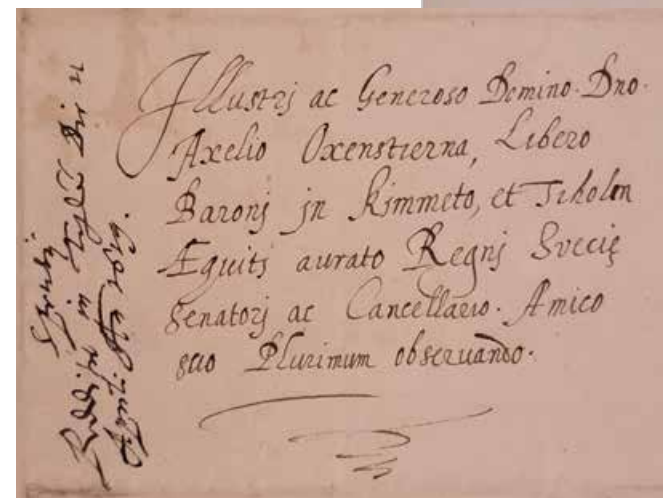 Illustrj ac Generoso Domino. Dno.
Axelio Oxenstierna, Libero
Baronj jn Kimmeto, et Tiholm
Æquitj aurato Regnj Svecię
Senatorj ac Cancellario. Amico
suo Plurimum observando.